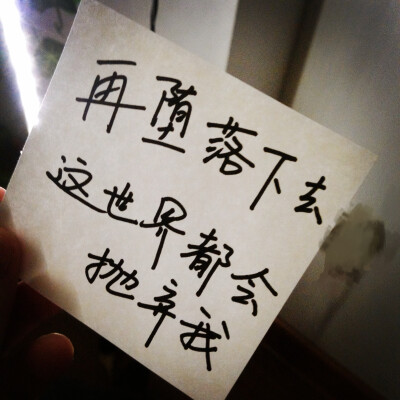 再堕落下去
这世界都会
抛弃我